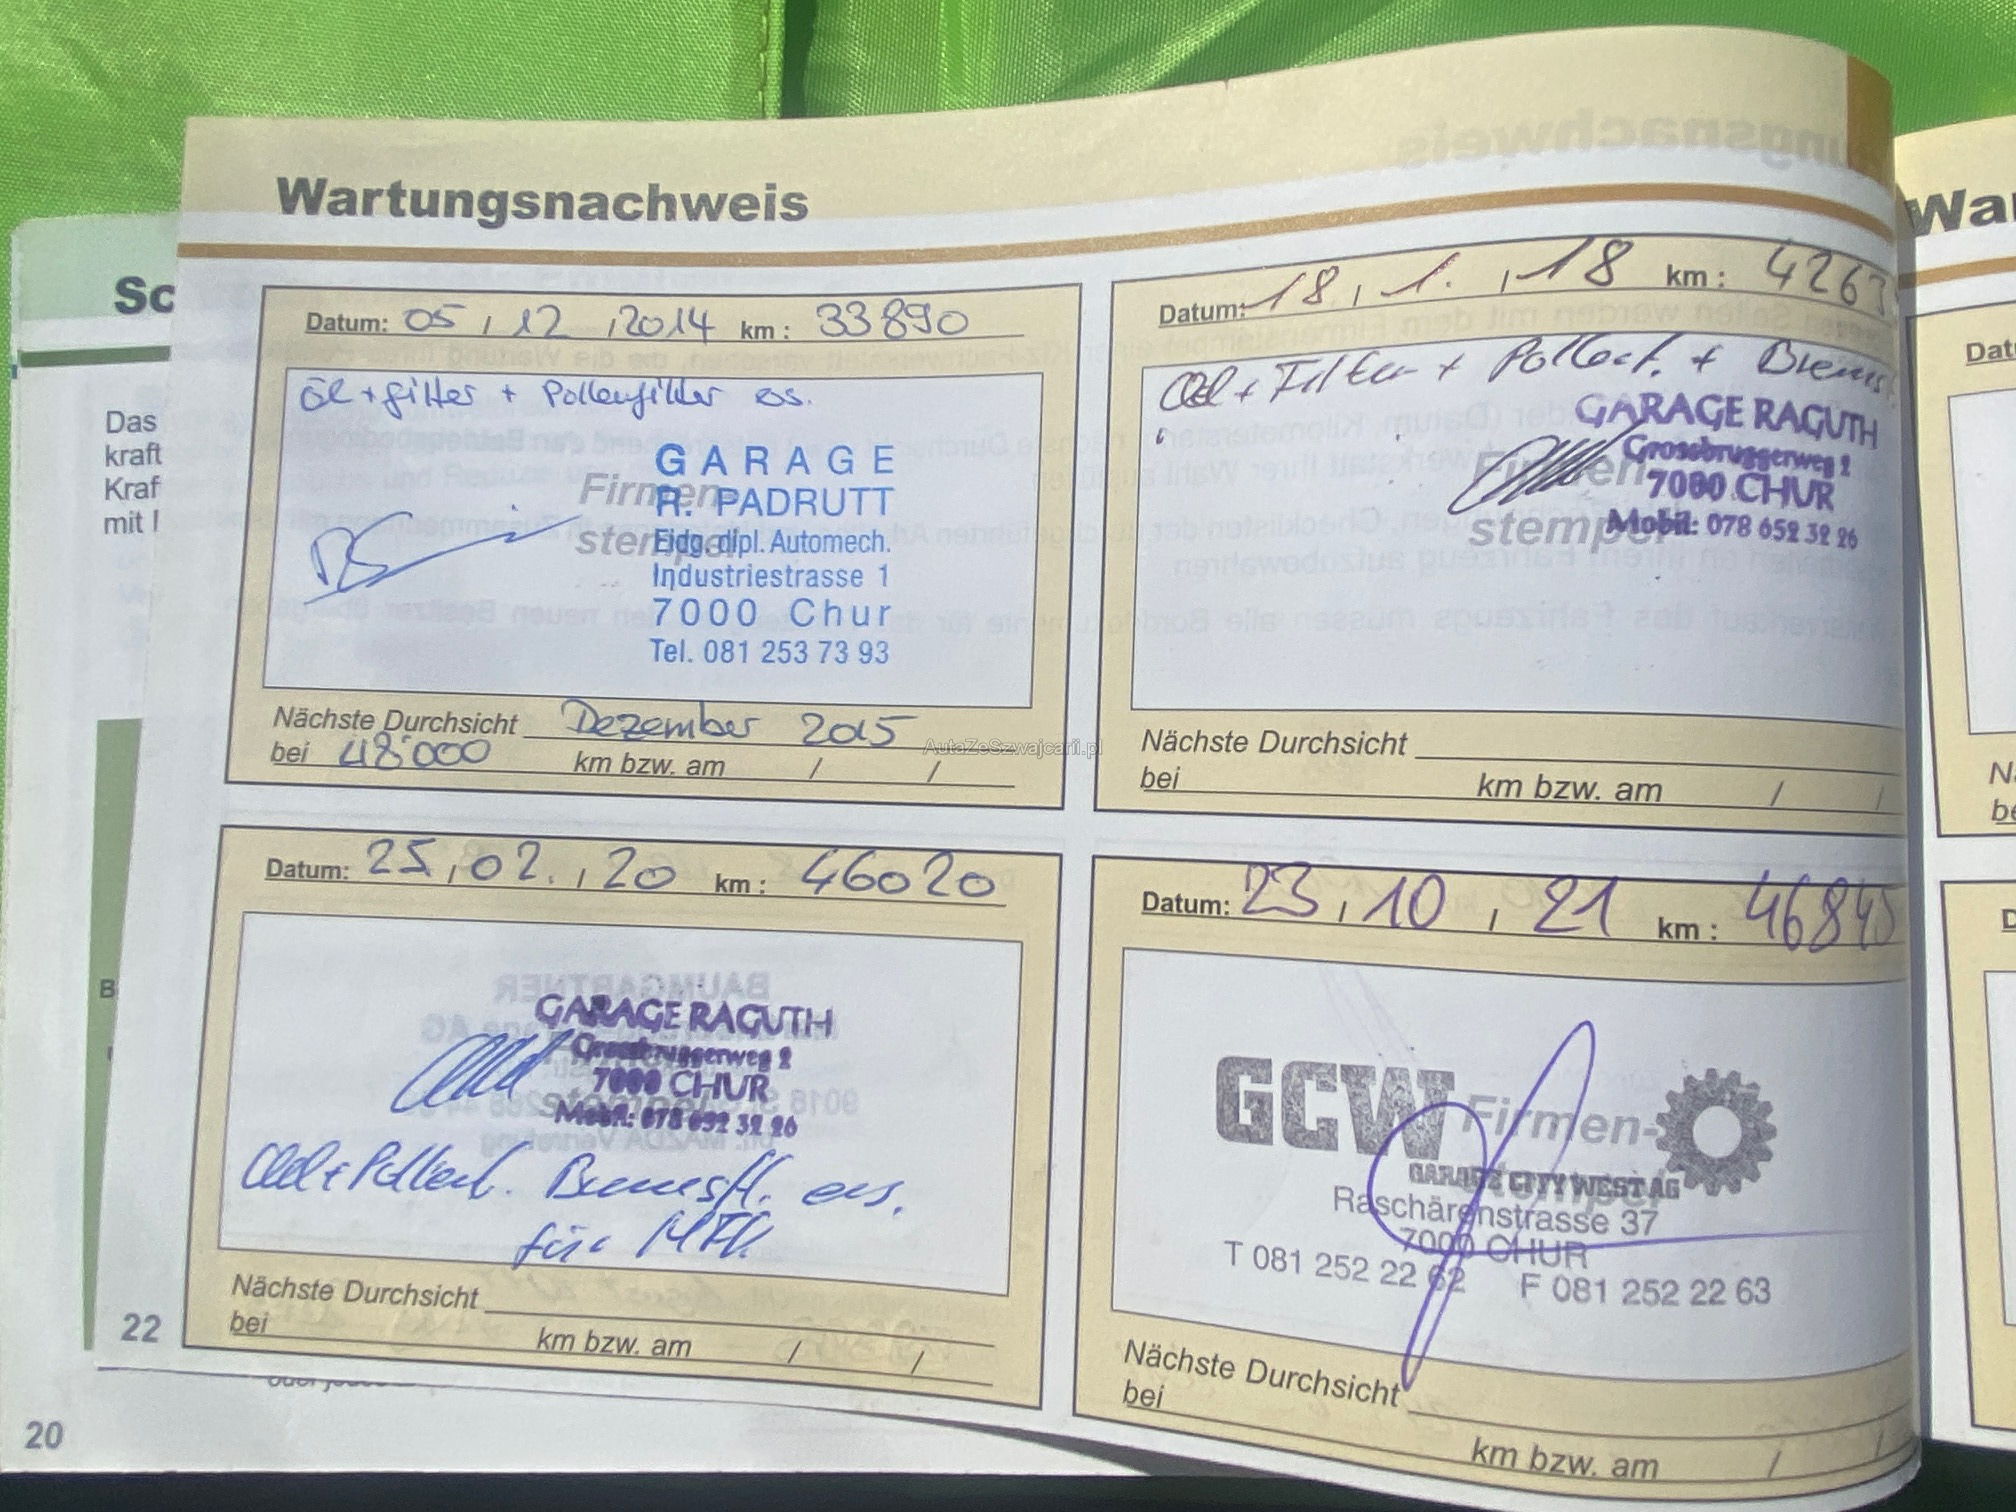 Wartungsnachweis
Datum: 05 / 12 / 2014 km : 33890
Öl + filter + Pollenfilter ers.
Firmen-
stempel
GARAGE
R. PADRUTT
Eidg. dipl. Automech.
Industriestrasse 1
7000 Chur
Tel. 081 253 73 93
Nächste Durchsicht Dezember 2015
bei 48'000 km bzw. am / /
Datum: 18 / 1. / 18 km : 4263
Oel + Filter + Pollenf. + Brems
Firmen-
stempel
GARAGE RAGUTH
Grossbruggerweg 2
7000 CHUR
Mobil: 078 652 32 26
Nächste Durchsicht
bei km bzw. am / /
Datum: 25 / 02. / 20 km : 46020
GARAGE RAGUTH
Grossbruggerweg 2
7000 CHUR
Mobil: 078 652 32 26
Oel + Pollenf. Bremsfl. ers.
für MFK
Nächste Durchsicht
bei km bzw. am / /
Datum: 23 / 10 / 21 km : 46845
GCW Firmen-
GARAGE CITY WEST AG
Raschärenstrasse 37
7000 CHUR
T 081 252 22 62 F 081 252 22 63
Nächste Durchsicht
bei
km bzw. am / /
22
Sc
Das
kraft
Kraf
mit
B
20
Wa
Dat
N
be
D
AutaZeSzwajcarii.pl